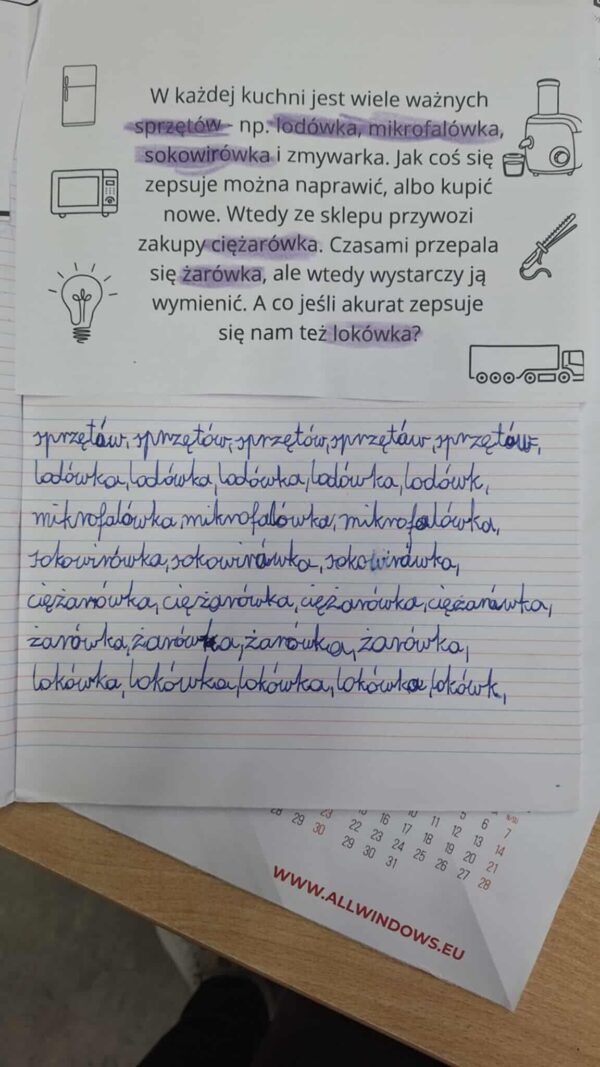 W każdej kuchni jest wiele ważnych
sprzętów - np. lodówka, mikrofalówka,
sokowirówka i zmywarka. Jak coś się
zepsuje można naprawić, albo kupić
nowe. Wtedy ze sklepu przywozi
zakupy ciężarówka. Czasami przepala
się żarówka, ale wtedy wystarczy ją
wymienić. A co jeśli akurat zepsuje
się nam też lokówka?
sprzętów, sprzętów, sprzętów, sprzętów, sprzętów,
lodówka, lodówka, lodówka, lodówka, lodówk,
mikrofalówka, mikrofalówka, mikrofalówka,
sokowirówka, sokowirówka, sokowirówka,
ciężarówka, ciężarówka, ciężarówka, ciężarówka,
żarówka, żarówka, żarówka, żarówka,
lokówka, lokówka, lokówka, lokówka, lokówk,
5 6 7
15 16 17 18 19 20 21
22 23 24 25 26 27 28
29 30 31
28 29 30
WWW.ALLWINDOWS.EU